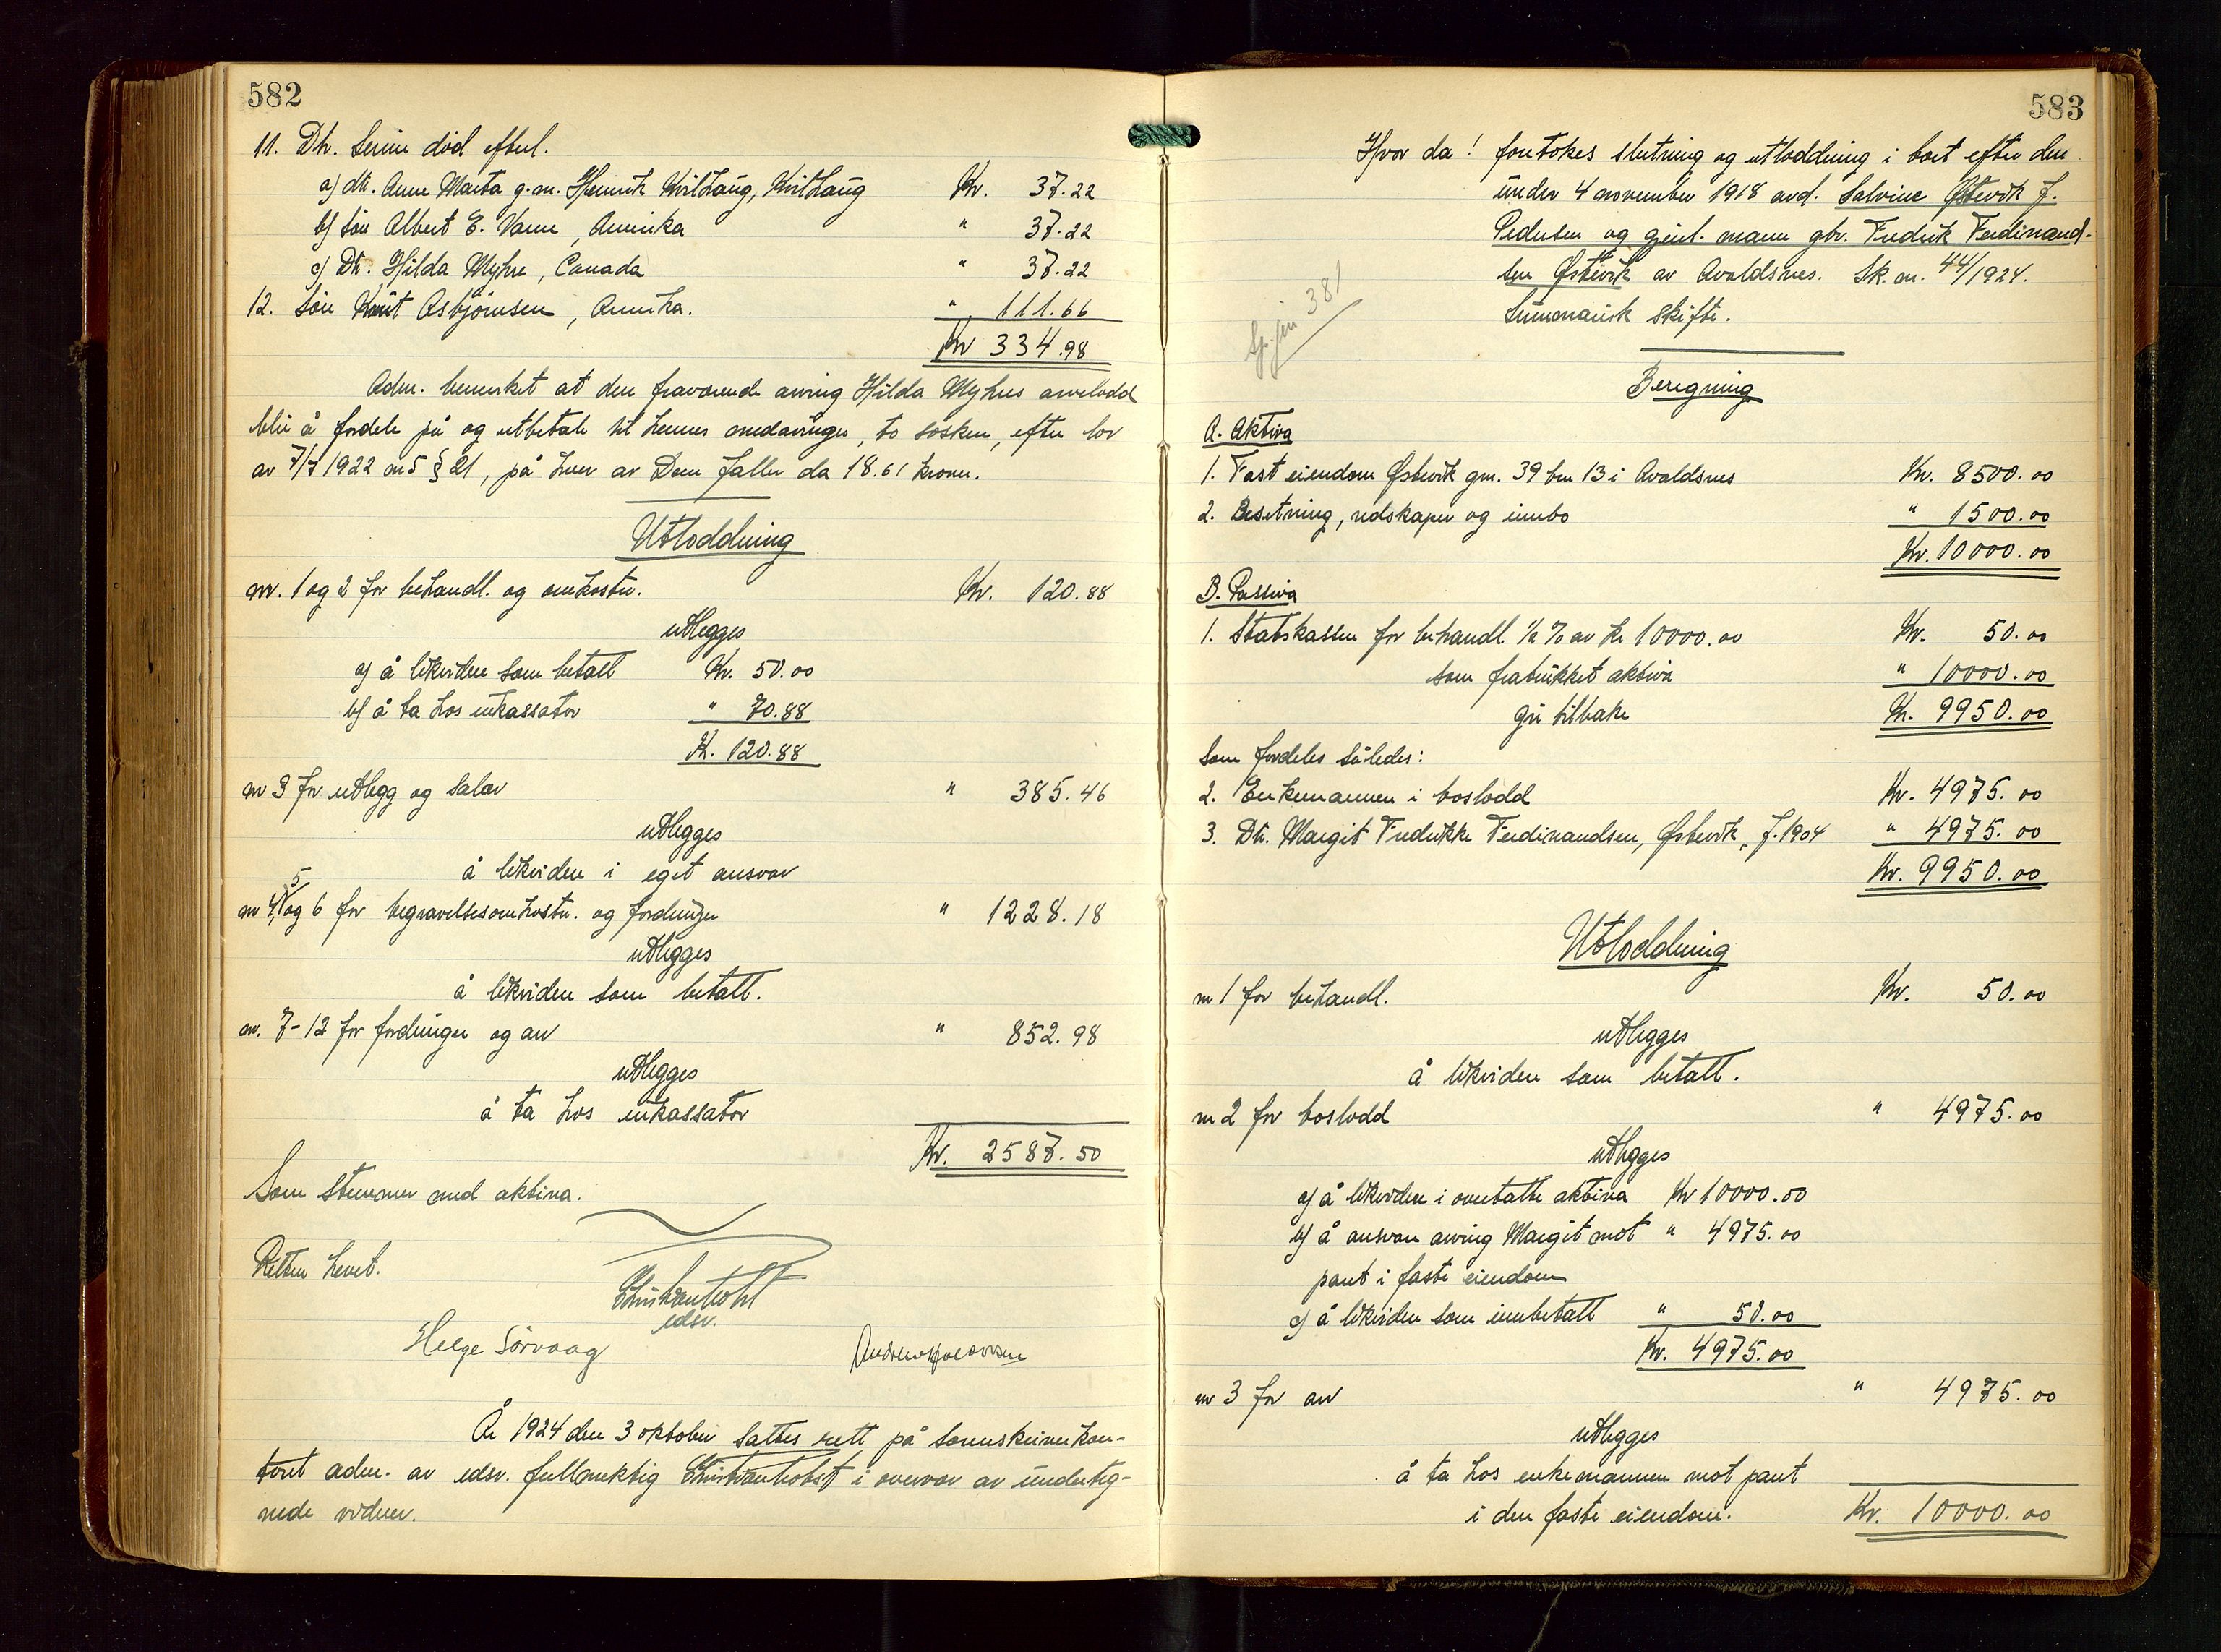 582
11. Dtr. Serine död efterl.
a) dtr. Anne Marta g.m. Henrik Kvilhaug, Kvilhaug Kr. 37.22
b) Søn Albert E. Vame, Amerika " 37.22
c) Dtr. Hilda Myhre, Canada " 37.22
12. Søn Knut Asbjörnsen, Amerika. " 111.66
Kr 334.98
Adm. bemerket at den fraværende arving Hilda Myhres arvelodd
blir å fordele på og utbetale til hennes medarvinger, to søsken, efter lov
av 7/7 1922 nr 5 § 21, på hver av Dem faller da 18.61 kroner.
Utloddning
nr. 1 og 2 for behandl. og omkostn. Kr. 120.88
utlegges
a) å likvidere som betalt Kr. 50.00
b) å ta hos inkassator " 70.88
Kr. 120.88
nr 3 for utlegg og salær " 385.46
utlegges
å likvidere i eget ansvar
5
nr 4, og 6 for begravelsesomkostn. og fordringer " 1228.18
utlegges
å likvidere som betalt.
nr. 7-12 for fordringer og arv " 852.98
utlegges
å ta hos inkassator
Kr. 2587.50
Som stemmer med aktiva.
Retten hevet.
edsv.
Helge Sörvaag
År 1924 den 3 oktober sattes rett på sorenskriverkon-
toret adm. av edsv. fullmektig i overvær av underteg-
nede vidner.
583
Hvor da! foretokes slutning og utloddning i boet efter den
under 4 november 1918 avd. Salvine Østevik f.
Pedersen og gjenl. mann gbr. Fredrik Ferdinand-
sen Østevik av Avaldsnes. Sk. nr. 44/1924.
Summarisk skifte.
381
Beregning
A. Aktiva
1. Fast eiendom Østevik gnr. 39 bnr 13 i Avaldsnes Kr. 8500.00
2. Besetning, redskaper og innbo " 1500.00
Kr. 10000.00
B. Passiva
1. Statskassen for behandl. ½ % av kr 10000.00 Kr. 50.00
som fratrukket aktiva " 10000.00
gir tilbake Kr. 9950.00
Som fordeles således:
2. Enkemannen i boslodd Kr. 4975.00
3. Dtr. Margit Fredrikke Ferdinandsen, Østevik, f. 1904 " 4975.00
Kr. 9950.00
Utloddning
nr 1 for behandl. Kr. 50.00
utlegges
å likvidere som betalt.
nr 2 for boslodd " 4975.00
utlegges
a) å likvidere i overtatte aktiva Kr 10000.00
b) å ansvare arving Margit mot " 4975.00
pant i faste eiendom
c) å likvidere som innbetalt " 50.00
Kr. 4975.00
nr 3 for arv " 4975.00
utlegges
å ta hos enkemannen mot pant
i den faste eiendom. Kr. 10000.00